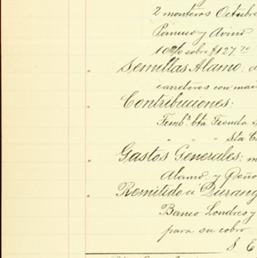 2 monteros Octubre
Panuco y Avino
10% sobre $127.70
Semillas Alamo.
carretoros con mai
Contribuciones:
Timb.s bta Tienda
" " Sta C
Gastos Generales:
Alamo y Peño
Remitido a Durang
Banco Londres y
para su cobro
$ 6